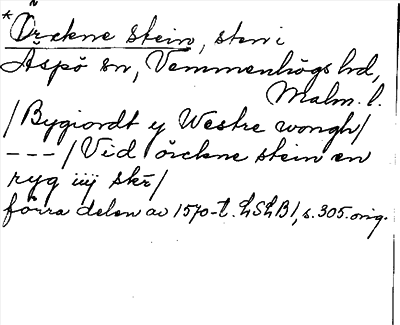 *Örckne stein, sten i
Äspö sn, Vemmenhögs hd,
Malm. l.
/Bygiordt y Westre wongh/
---/Vid örckne stein en
ryg iiij skr/
förra delen av 1570-t. LSLB1, s. 305. orig.